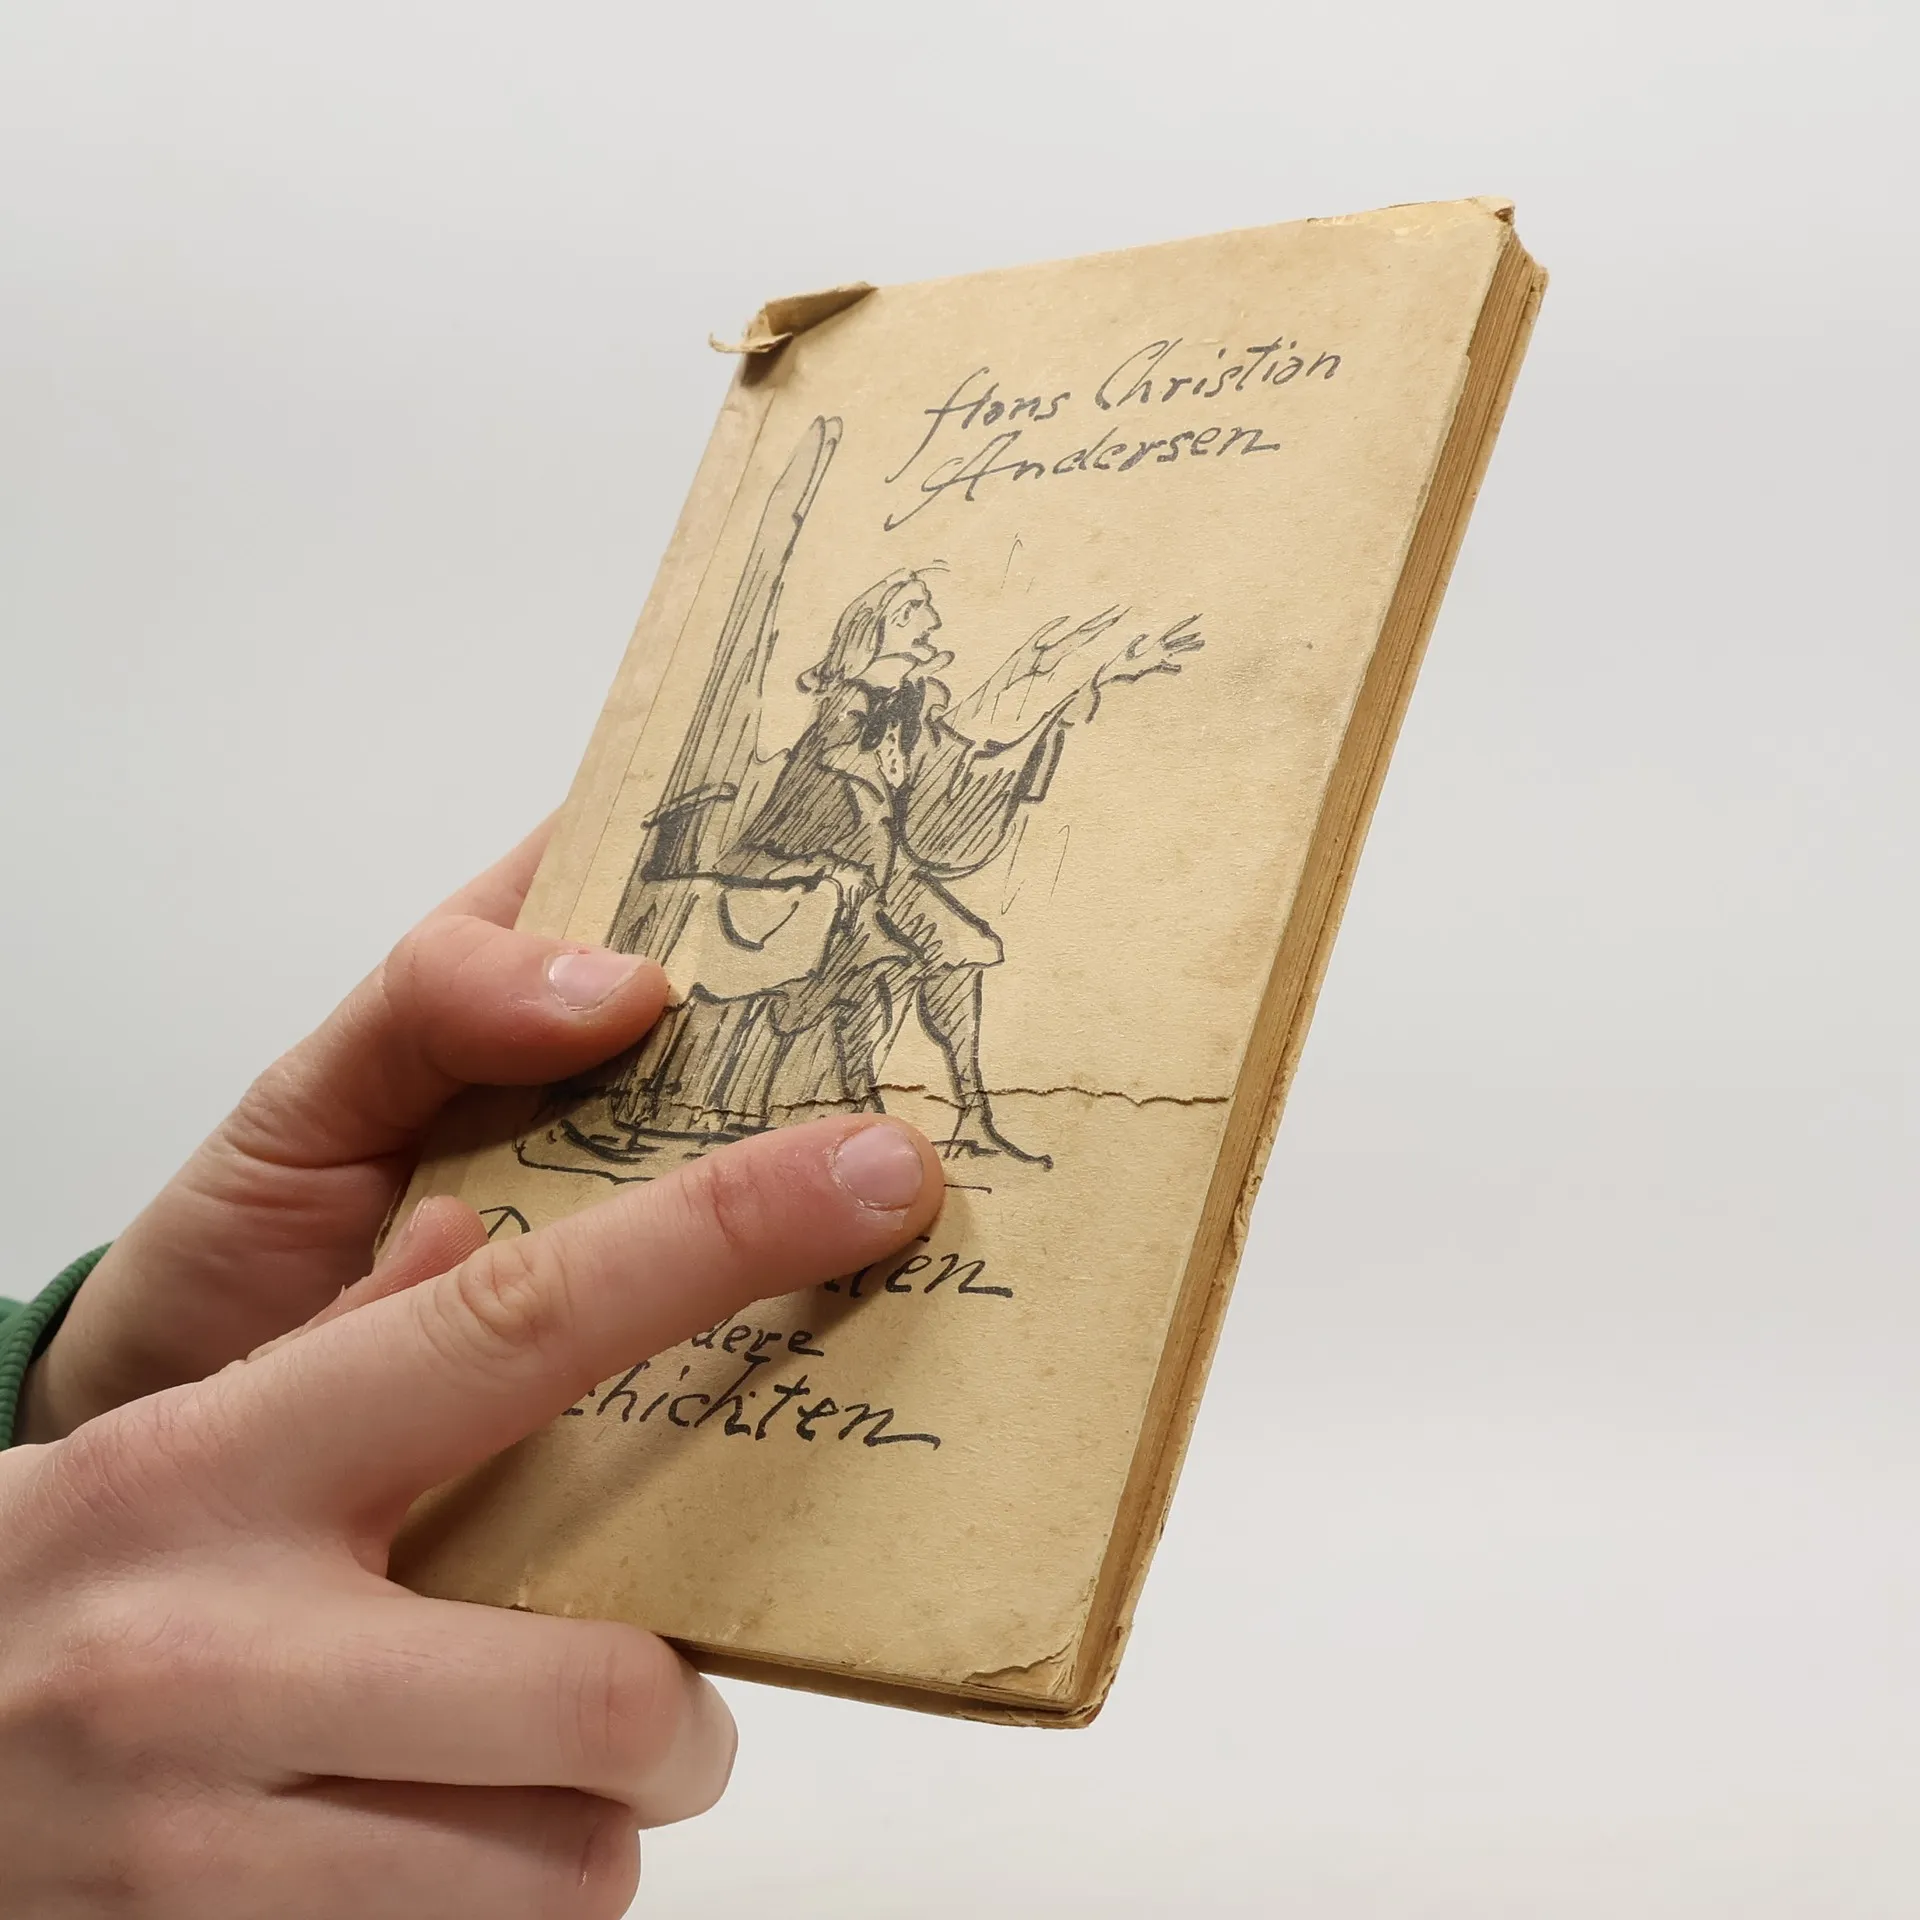 Hans Christian
Andersen
ten
dere
chichten